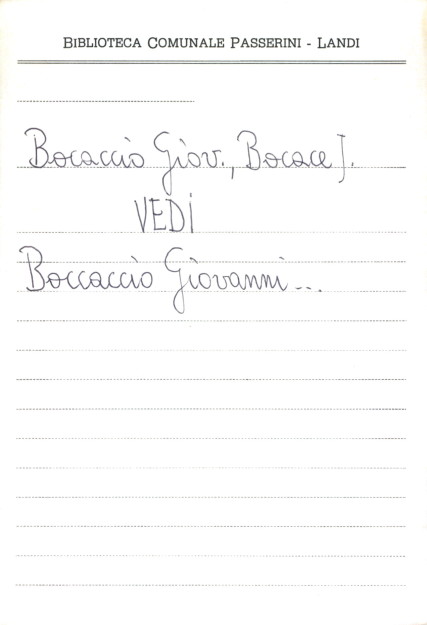 BIBLIOTECA COMUNALE PASSERINI - LANDI
Bocaccio Giov., Bocace J.
VEDI
Boccaccio Giovanni...